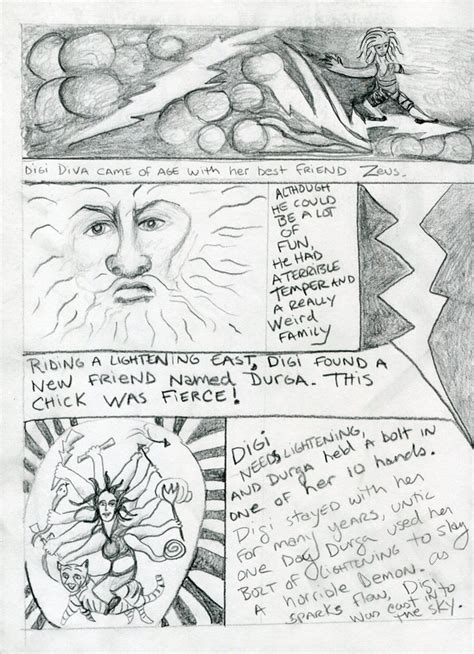 Digi Diva came of age with her best friend Zeus.
ALTHOUGH
HE COULD
BE A LOT
OF
FUN,
He HAD
A TERRIBLE
TEMPER AND
A REALLY
Weird
FAMILY
RIDING A LIGHTENING EAST, DIGI FOUND A
NEW FRIEND NAMED DURGA. THIS
CHICK WAS FIERCE!
DIGI
NEEDS LIGHTENING,
AND DURGA HELD A BOLT IN
ONE OF HER 10 HANDS.
Digi stayed with her
for many years, until
one day Durga used her
BOLT OF LIGHTENING TO SLAY
A HORRIBLE DEMON. AS
SPARKS FLEW, DIGI
WAS CAST INTO
THE SKY.